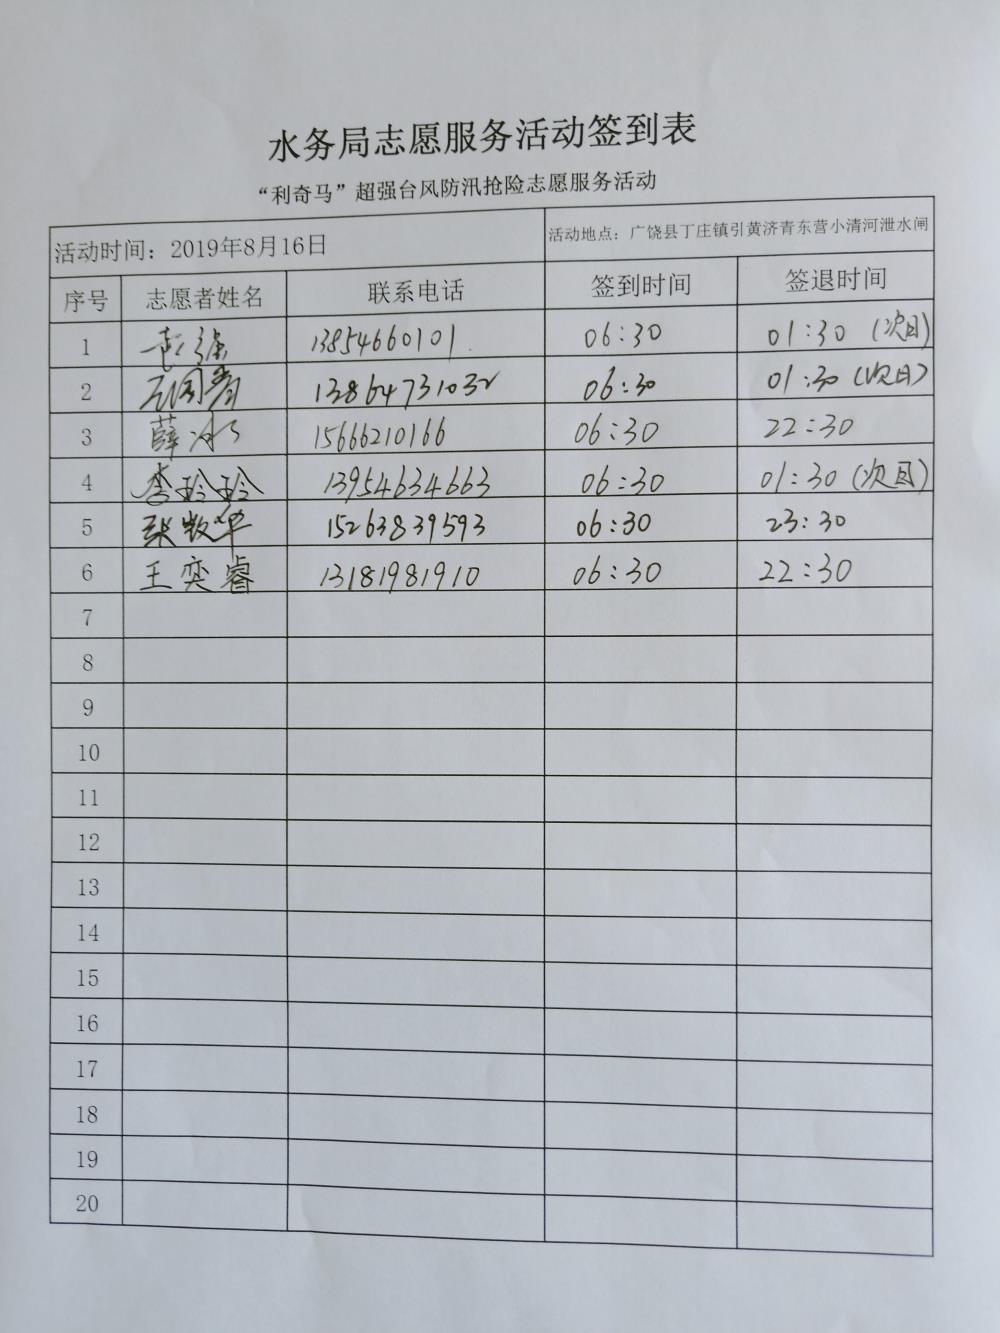 水务局志愿服务活动签到表
“利奇马”超强台风防汛抢险志愿服务活动
活动时间：2019年8月16日 活动地点：广饶县丁庄镇引黄济青东营小清河泄水闸
序号 志愿者姓名 联系电话 签到时间 签退时间
1 13854660101 06:30 01:30（次日）
2 13864731032 06:30 01:30（次日）
3 薛冰 15666210166 06:30 22:30
4 李玲玲 13954634663 06:30 01:30（次日）
5 张敬华 15263839593 06:30 23:30
6 王奕睿 13181981910 06:30 22:30
7
8
9
10
11
12
13
14
15
16
17
18
19
20